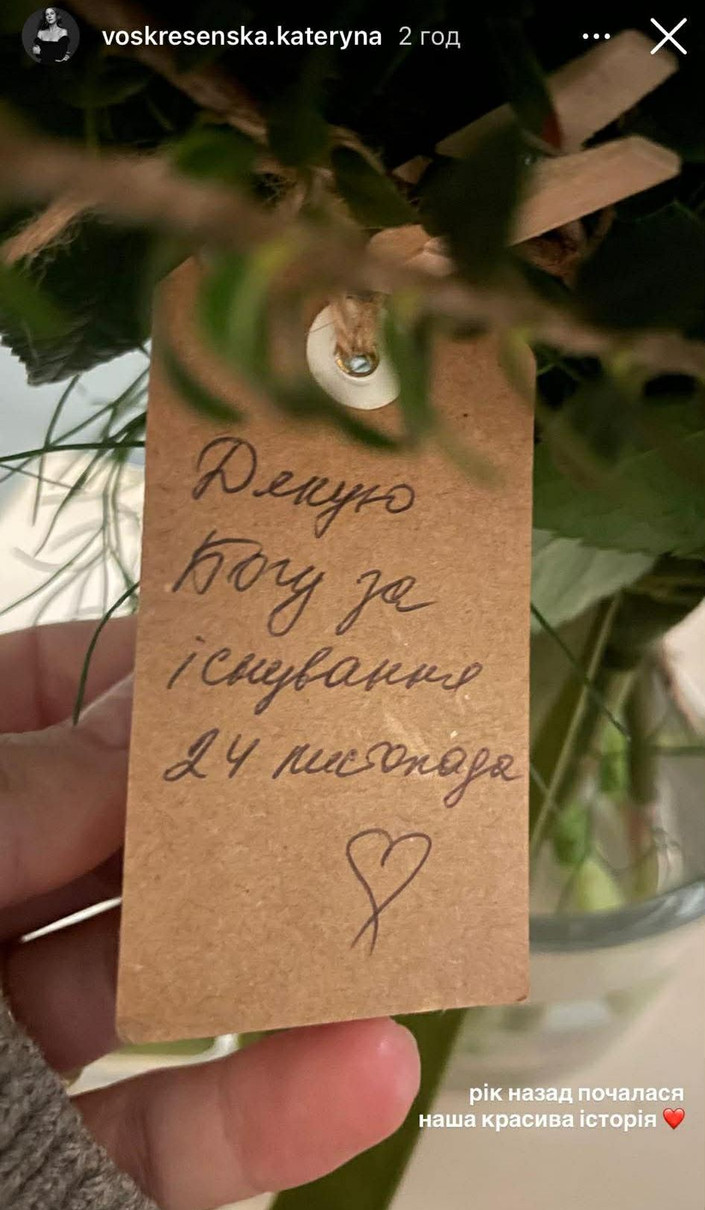 voskresenska.kateryna 2 год
Дякую
Богу за
існування
24 листопада
рік назад почалася
наша красива історія ❤️